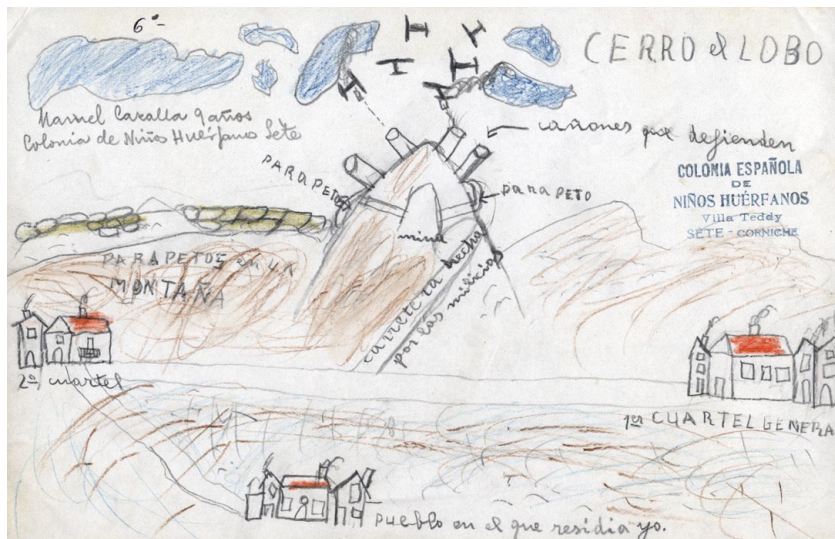 6º-
CERRO el LOBO
Manuel Cazalla 9 años
Colonia de Niños Huérfanos Sete
cañones que defienden
COLONIA ESPAÑOLA
DE
NIÑOS HUÉRFANOS
Villa Teddy
SÈTE - CORNICHE
PARAPETO
PARAPETO
mina
PARAPETOS en un
MONTAÑA
carretera hecha
por las milicias
2º cuartel
1er CUARTEL GENERA
pueblo en el que residia yo.